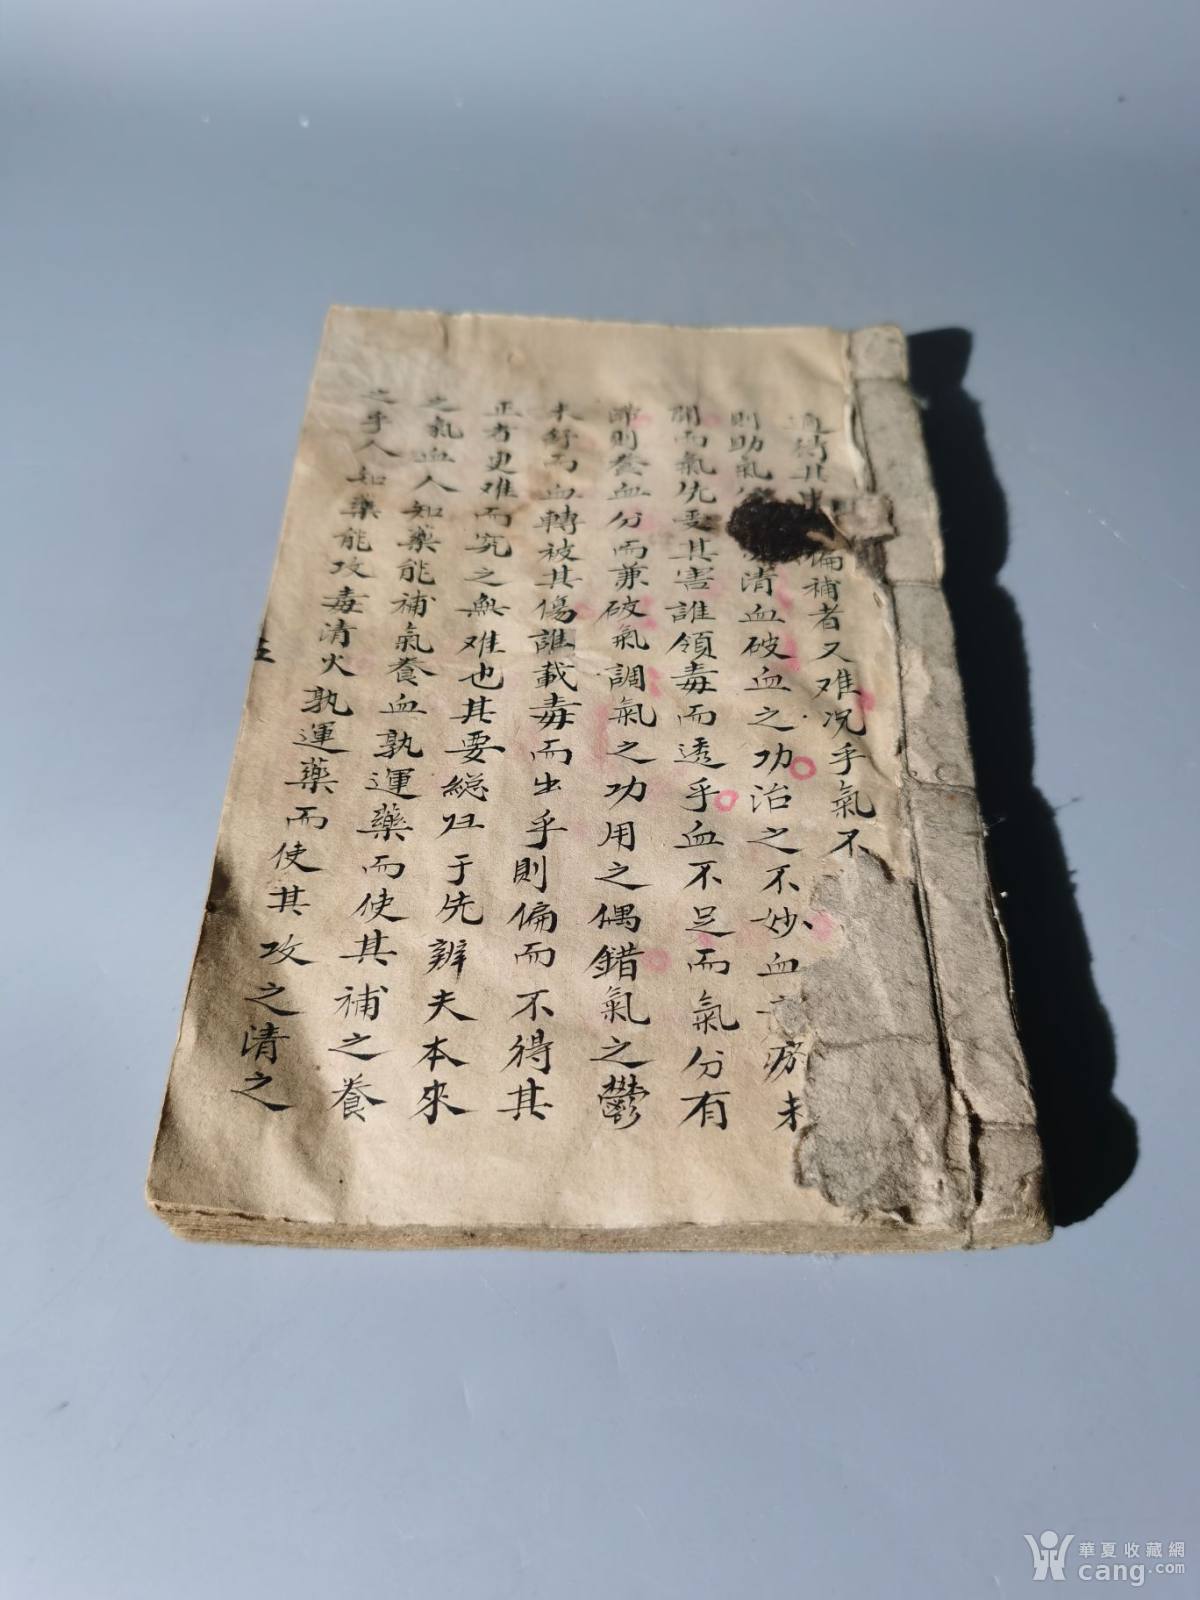 適𠋫其 偏補者又难况乎氣不
則助氣 清血破血之功治之不妙血 疬未
開而氣先受其害誰領毒而透乎血不足而氣分有
滯則養血分而兼破氣調氣之功用之偶錯氣之鬱
未舒而血轉被其傷誰載毒而出乎則偏而不得其
正者更难而究之無难也其要総㱕于先辨夫本來
之氣血人知藥能補氣養血孰運藥而使其補之養
之乎人知藥能攻毒清火孰運藥而使其攻之清之
華夏收藏網
cang.com